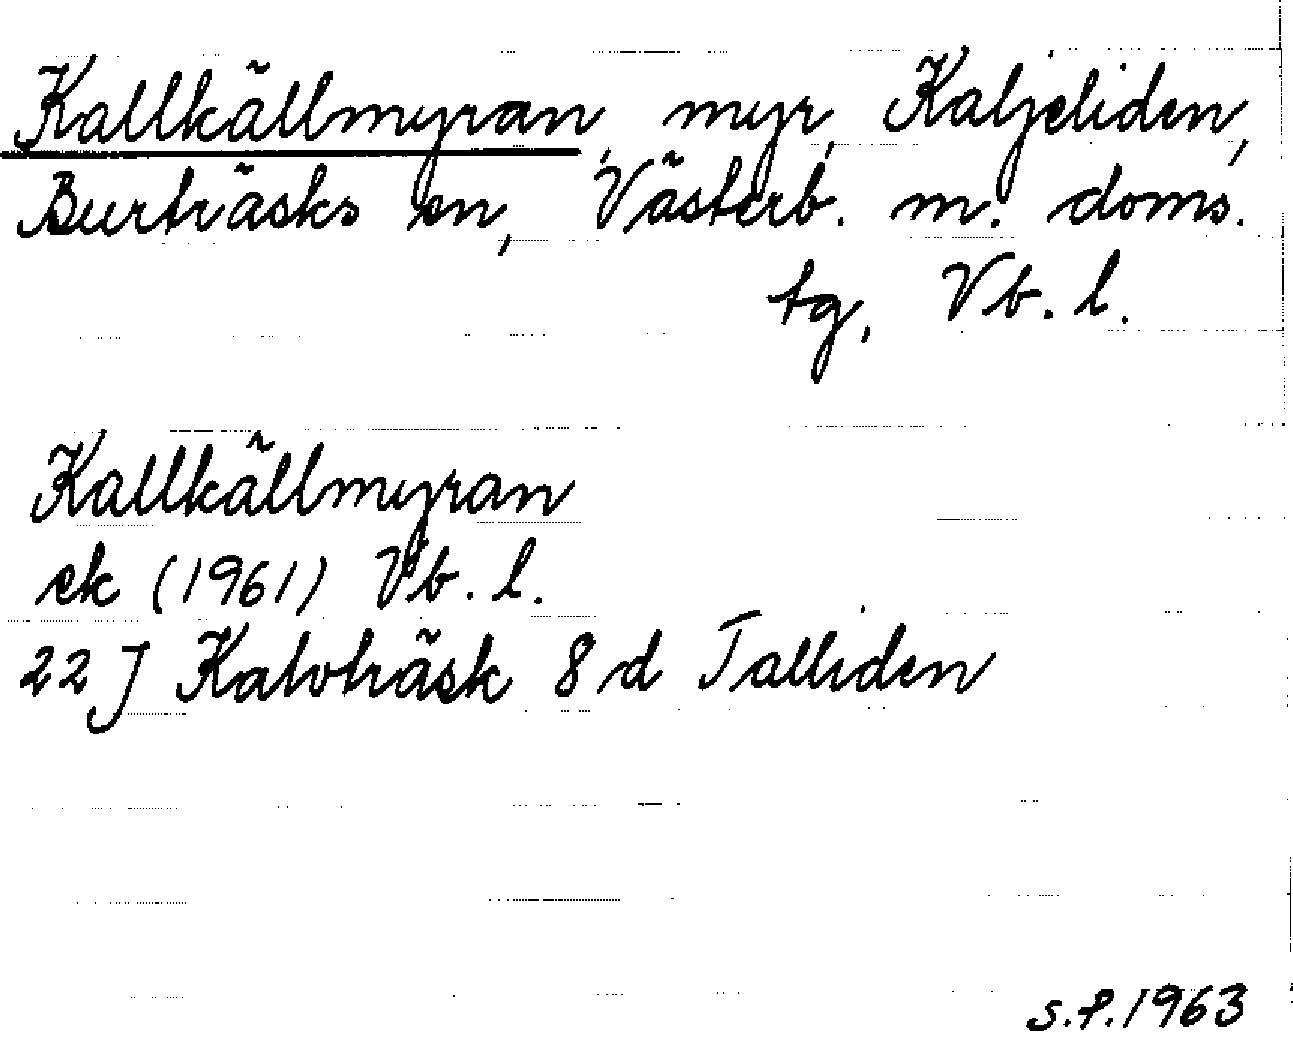 Kallkällmyran, myr, Kaljeliden,
Burträsks sn, Västerb. m. doms.
tg, Vb. l.
Kallkällmyran
ek (1961) Vb. l.
22 J Kalvträsk 8 d Talliden
s.f. 1963